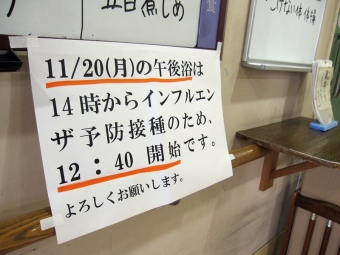 五目煮しめ
食
11/20(月)の午後浴は
14時からインフルエン
ザ予防接種のため、
12：40 開始です。
よろしくお願いします。